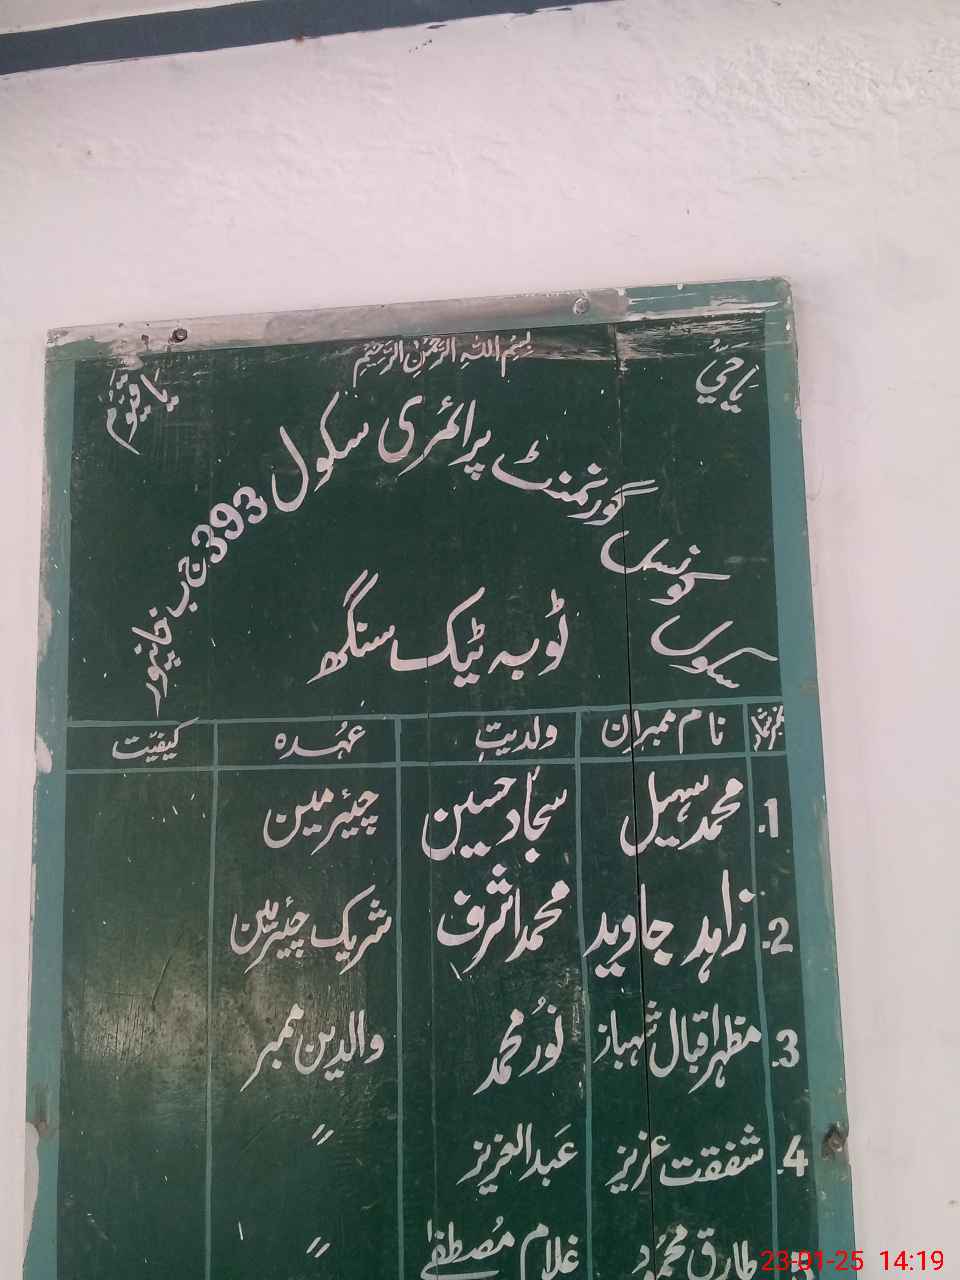 بِسْمِ اللّٰهِ الرَّحْمٰنِ الرَّحِيْمِ
یَا حَیُّ
یَا قَیُّوْمُ
سکول کونسل گورنمنٹ پرائمری سکول 393 ج ب خانپور
ٹوبہ ٹیک سنگھ
نمبر شمار نام ممبران ولدیت عہُدہ کیفیّت
1. محمد سہیل سجاد حسین چیئرمین
2. زاہد جاوید محمد اشرف شریک چیئرمین
3. مظہر اقبال شہباز نوُر محمد والدین ممبر
4. شفقت عزیز عَبد العزیز 〃
طارق محموُد غلام مصُطفےٰ 〃
23-01-25 14:19